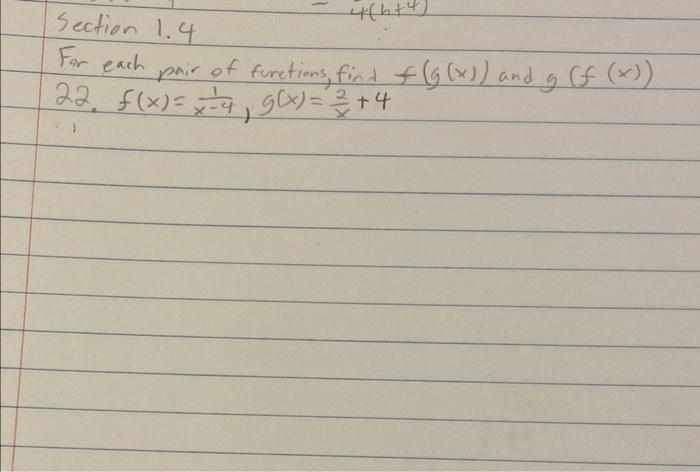 4(h+4)
Section 1.4
For each pair of functions, find f(g(x)) and g(f(x))
22. f(x)= 1/(x-4), g(x)= 2/x +4